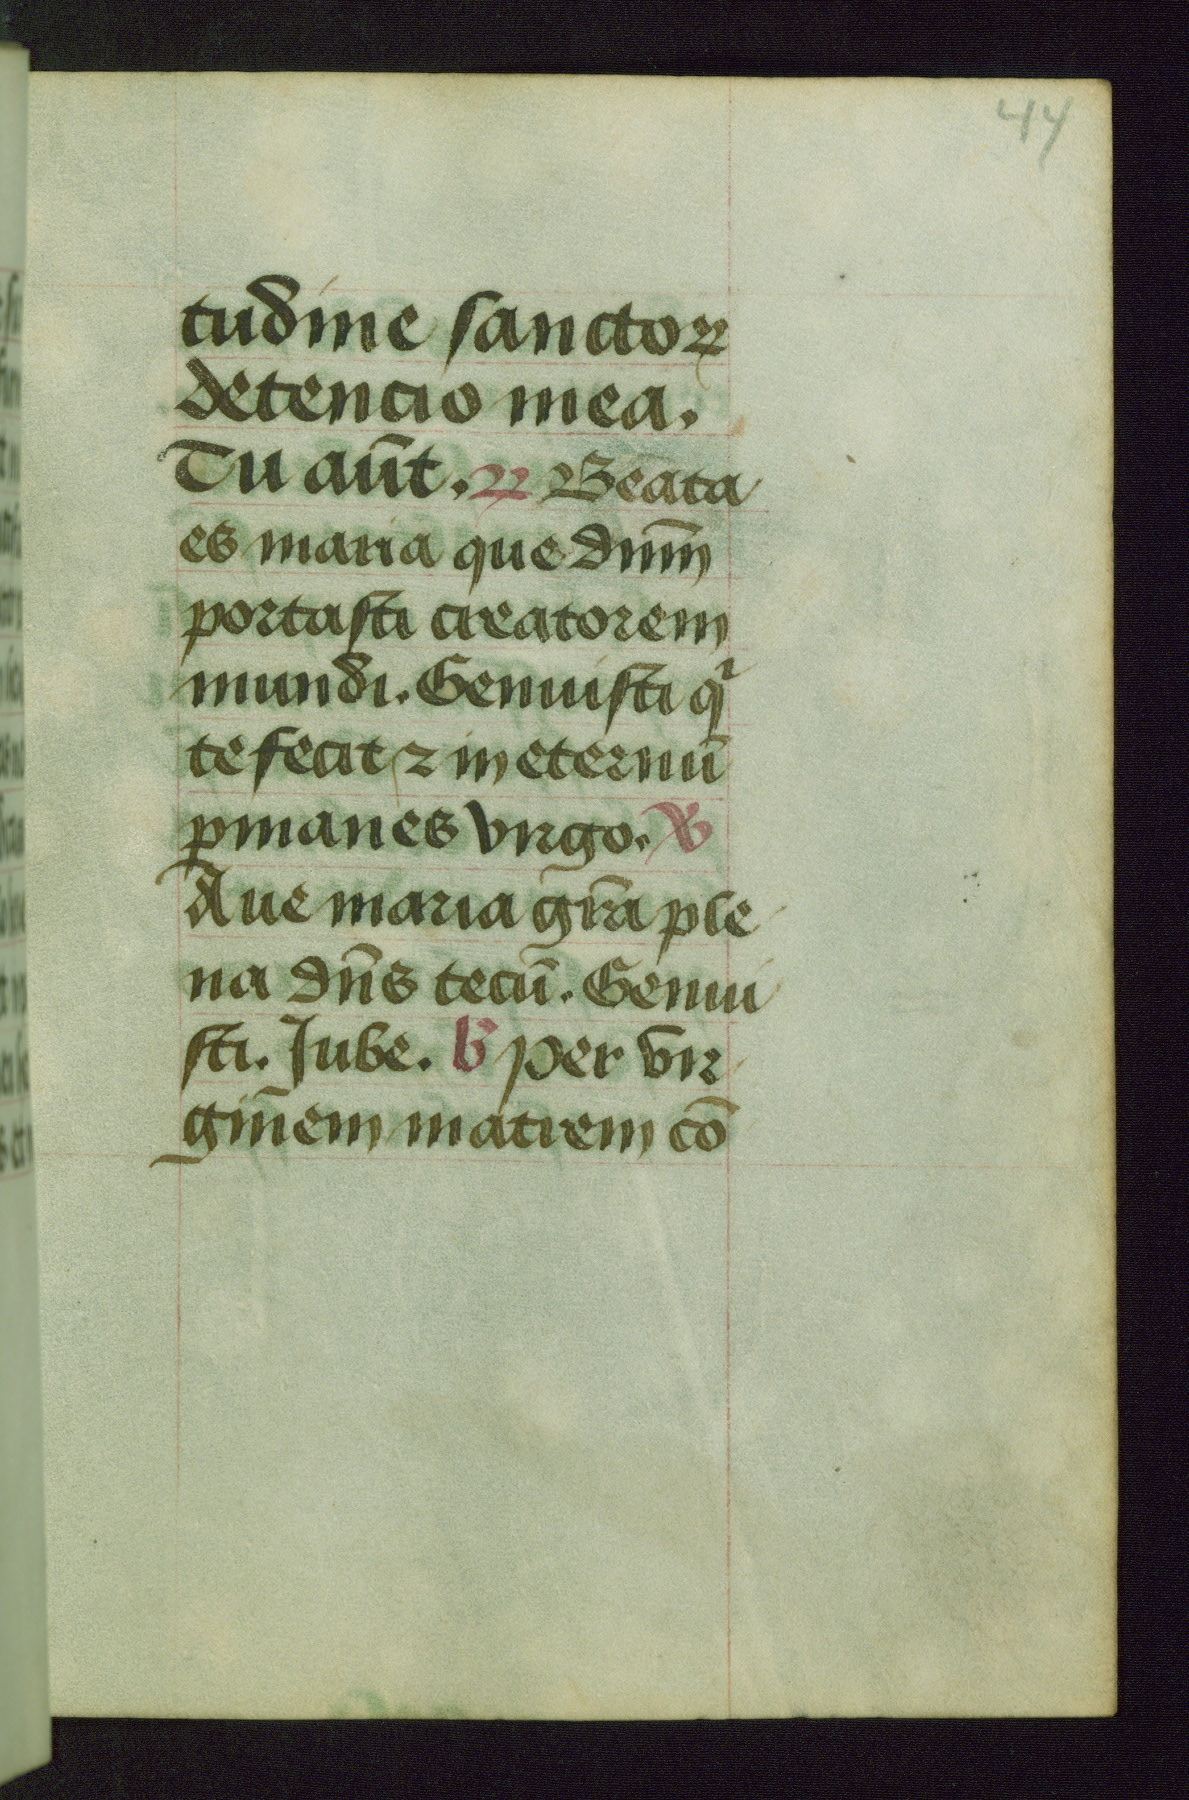 44
tudine sanctoꝝ
detencio mea.
Tu aut̄. ℟ Beata
es maria que dnm̄
portasti creatorem
mundi. Genuisti qͥ
te fecit ⁊ in eternū
ꝑmanes virgo. ℣
Aue maria gr̄a ple
na dn̄s tecū. Genui
sti. Jube. b̄ Per vir
ginem matrem cō